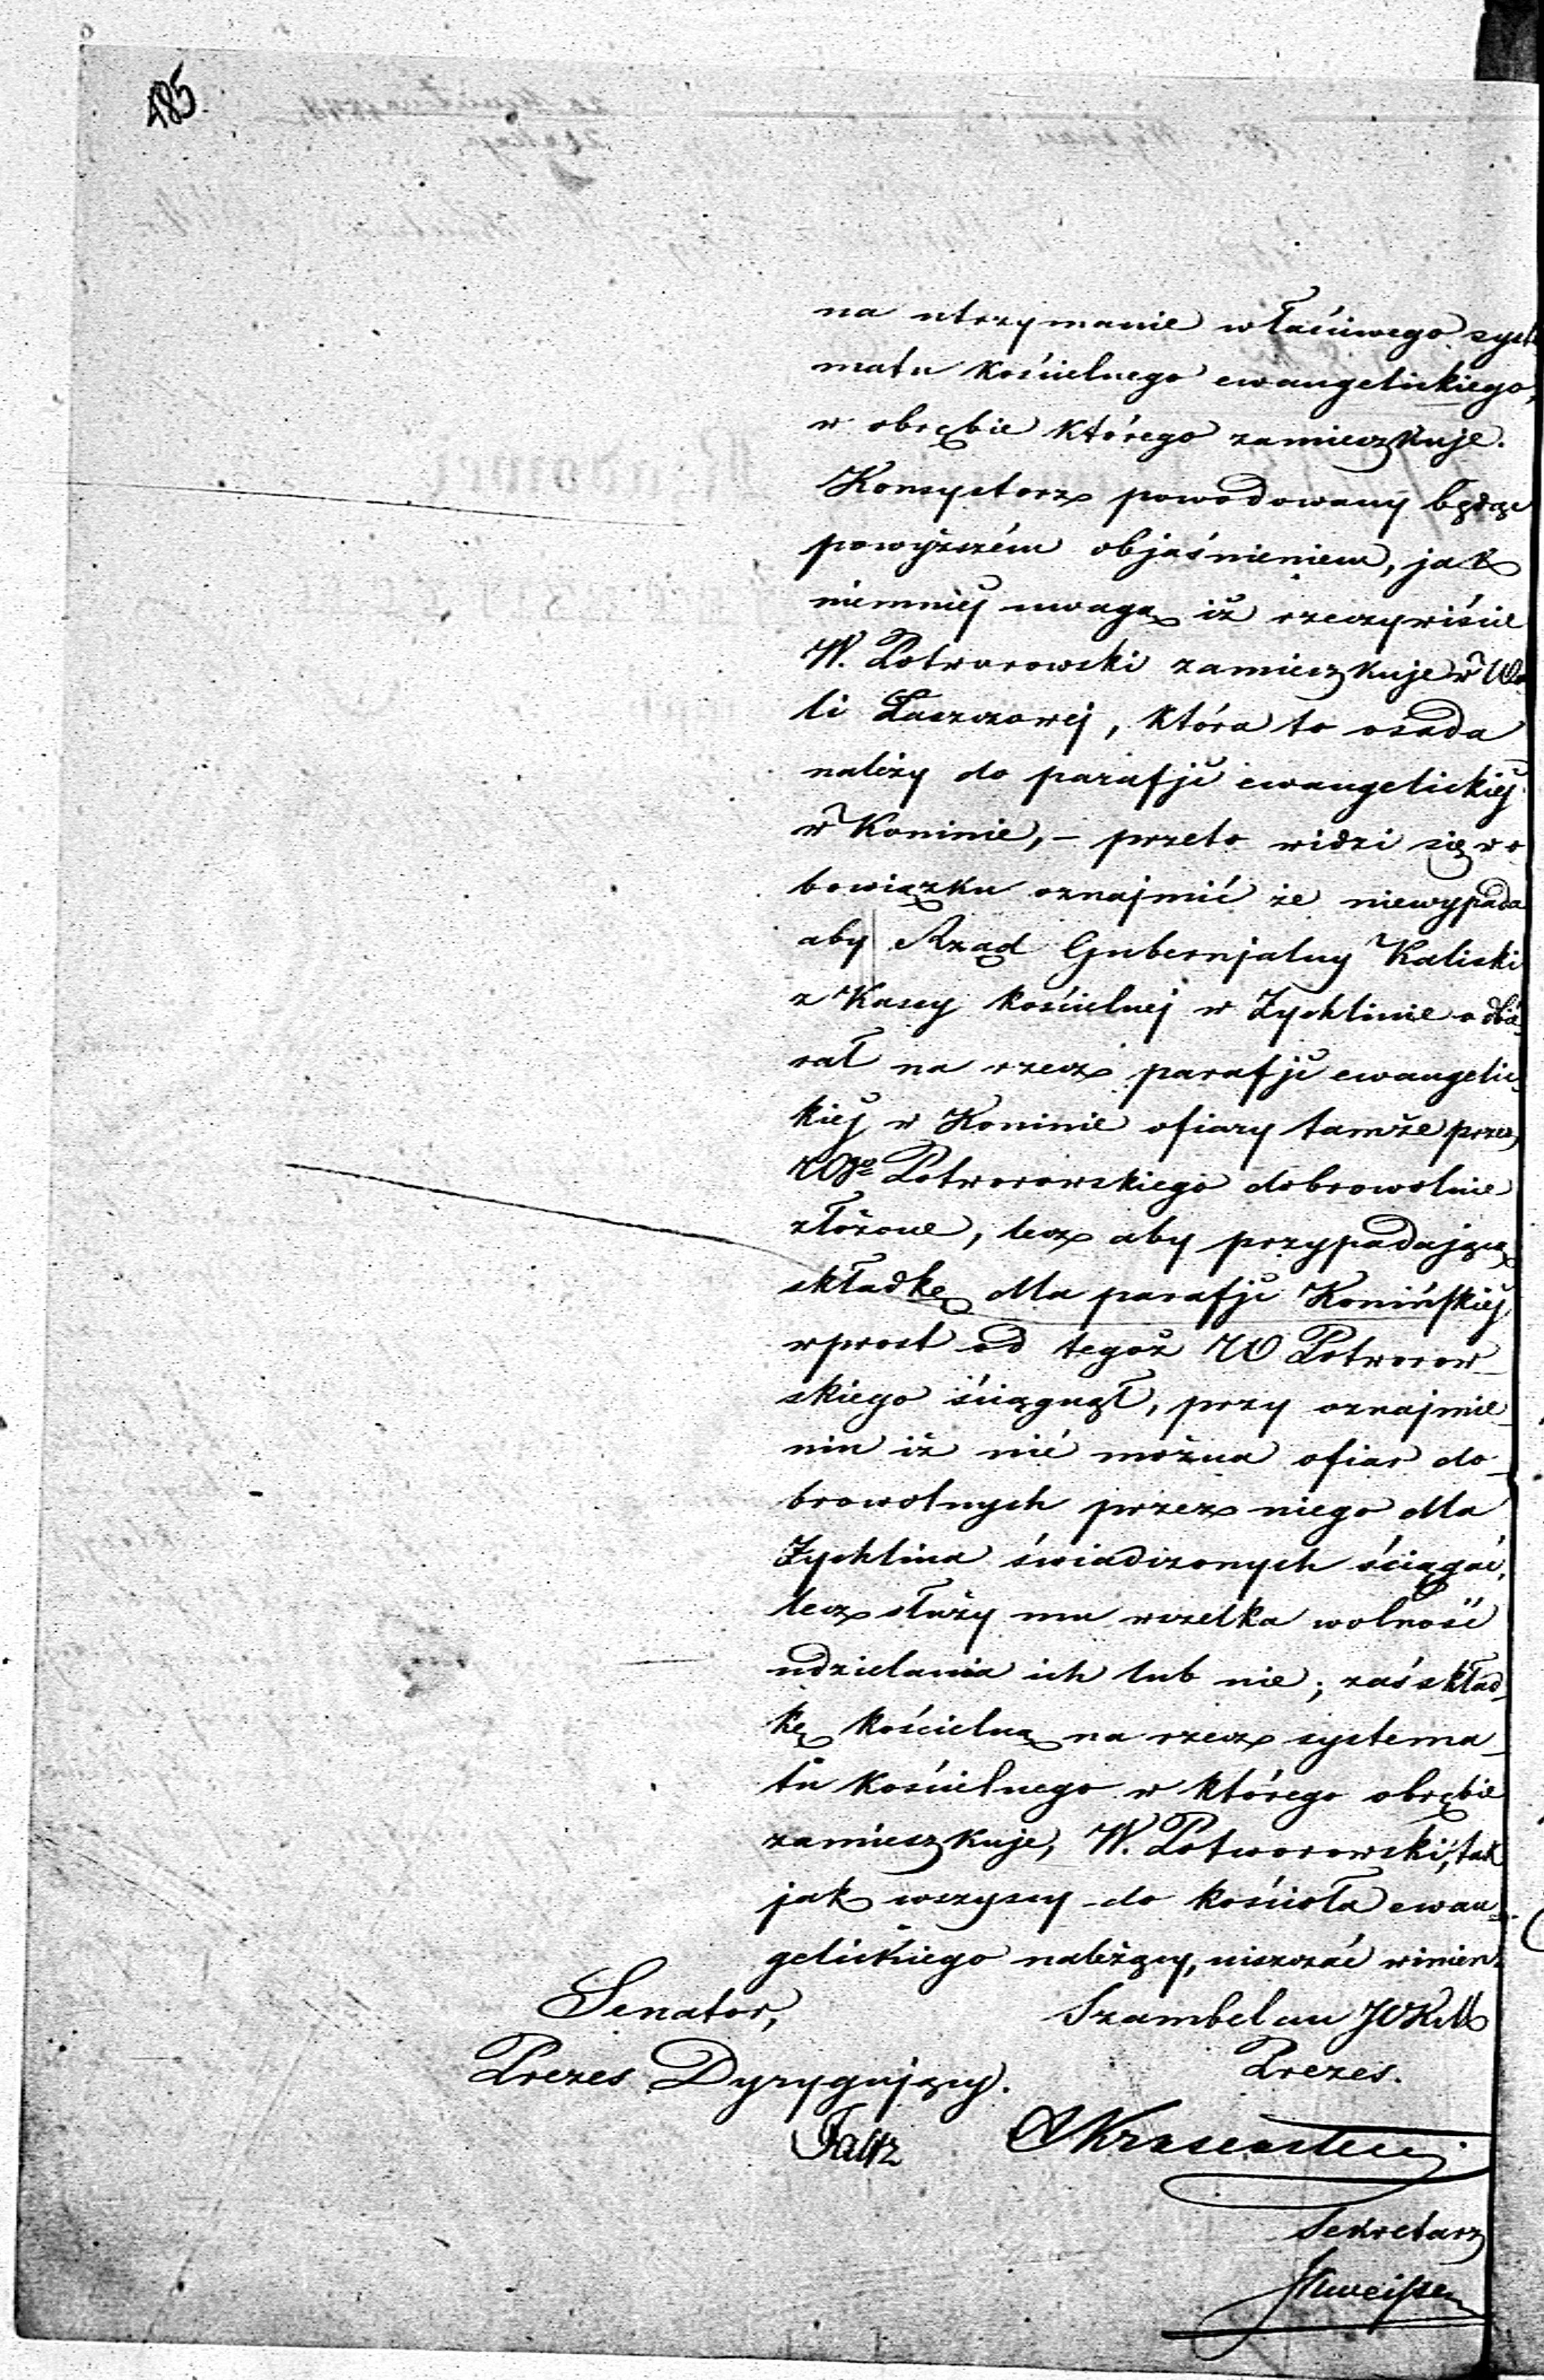 185
na utrzymanie właściwego syste
matu kościelnego ewangelickiego,
w obrębie którego zamieszkuje.
Konsystorz powodowany będąc
powyższém objaśnieniem, jak
niemniéj uwagą iż rzeczywiście
W. Potworowski zamieszkuje w Wo
li Łaszczowej, która to osada
należy do parafji ewangelickiéj
w Koninie, – przeto widzi się w o
bowiązku oznajmić że niewypada
aby Rząd Gubernjalny Kaliski
z Kassy kościelnéj w Żychlinie odbie
rał na rzecz parafji ewangelic
kiéj w Koninie ofiary tamże przez
Wgo Potworowskiego dobrowolnie
złożone, lecz aby przypadającą
składkę dla parafji Konińskiéj
wprost od tegoż W Potworow_
skiego ściągnął, przy oznajmie_
niu iż nié można ofiar do_
browolnych przez niego dla
Żychlina świadczonych ściągać,
lecz służy mu wszelka wolność
udzielania ich lub nie; zaś skład_
kę kościelną na rzecz systema_
tu kościelnego w którego obrębie
zamieszkuje, W. Potworowski, tak
jak wszyscy do kościoła ewan_
gelickiego należący, uiszczać winien.
Senator, Szambelan JWKM
Prezes Dyrygujący. Prezes.
Sekretarz